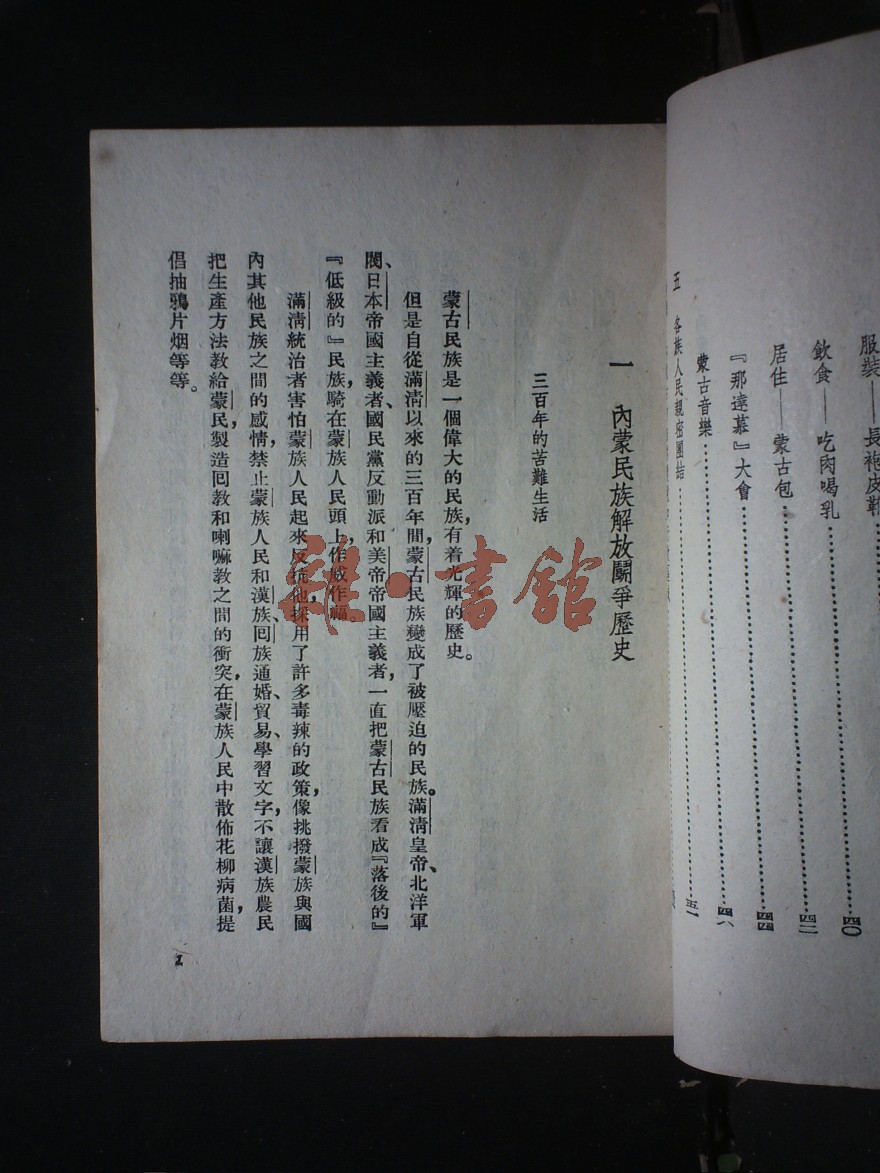 服裝——長袍皮靴
四〇
飲食——吃肉喝乳
四二
居住——蒙古包
四四
『那達慕』大會
四六
蒙古音樂
五 各族人民親密團結
五一
一 內蒙民族解放鬭爭歷史
三百年的苦難生活
蒙古民族是一個偉大的民族，有着光輝的歷史。
但是自從滿清以來的三百年間，蒙古民族變成了被壓迫的民族。滿清皇帝、北洋軍
閥、日本帝國主義者、國民黨反動派和美帝帝國主義者，一直把蒙古民族看成『落後的』
『低級的』民族，騎在蒙族人民頭上，作威作福。
滿清統治者害怕蒙族人民起來反抗他，採用了許多毒辣的政策，像挑撥蒙族與國
內其他民族之間的感情，禁止蒙族人民和漢族、回族通婚、貿易、學習文字，不讓漢族農民
把生產方法教給蒙民，製造回教和喇嘛教之間的衝突，在蒙族人民中散佈花柳病菌，提
倡抽鴉片烟等等。
1
雜·書館